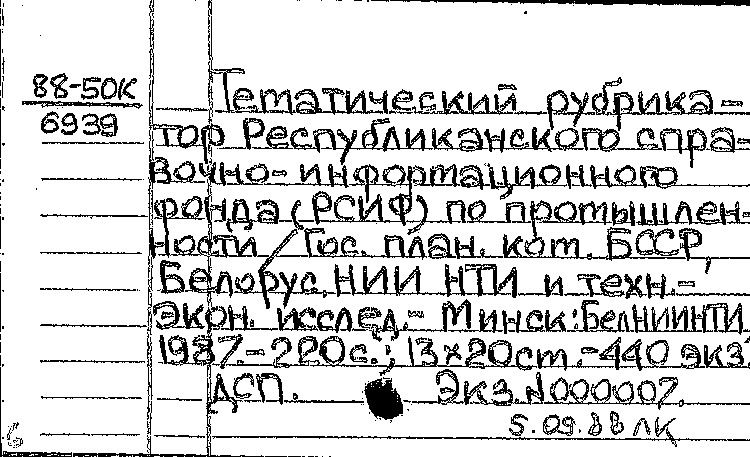 88-50К
6939
Тематический рубрика-
тор Республиканского спра-
вочно-информационного
фонда (РСИФ) по промышлен-
ности / Гос. план. ком. БССР,
Белорус. НИИ НТИ и техн.-
экон. исслед.- Минск: БелНИИНТИ
1987.-220с.; 13×20cm.-440 экз.
ДСП. Экз.N000007.
5.09.88 ЛК
6